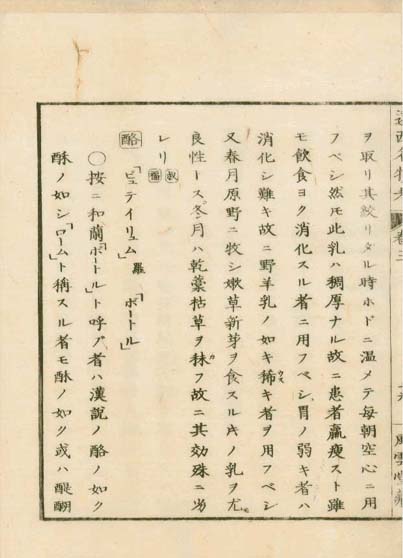 ヲ取リ其絞リタル時ホドニ温メテ毎朝空心ニ用
フベシ然モ此乳ハ稠厚ナル故ニ患者羸痩スト雖
モ飲食ヨク消化スル者ニ用フベシ胃ノ弱キ者ハ
消化シ難キ故ニ野羊乳ノ如キ稀キ者ヲ用フベシ
又春月原野ニ牧シ嫩草新芽ヲ食スル牛ノ乳ヲ尤
良性トス冬月ハ乾藁枯草ヲ秣フ故ニ其効殊ニ劣
レリ
酪 「ビュテイリュム」羅 「ボートル」
〇按ニ和蘭「ボートル」ト呼ブ者ハ漢説ノ酪ノ如ク
酥ノ如シ「ローム」ト稱スル者モ酥ノ如ク或ハ醍醐